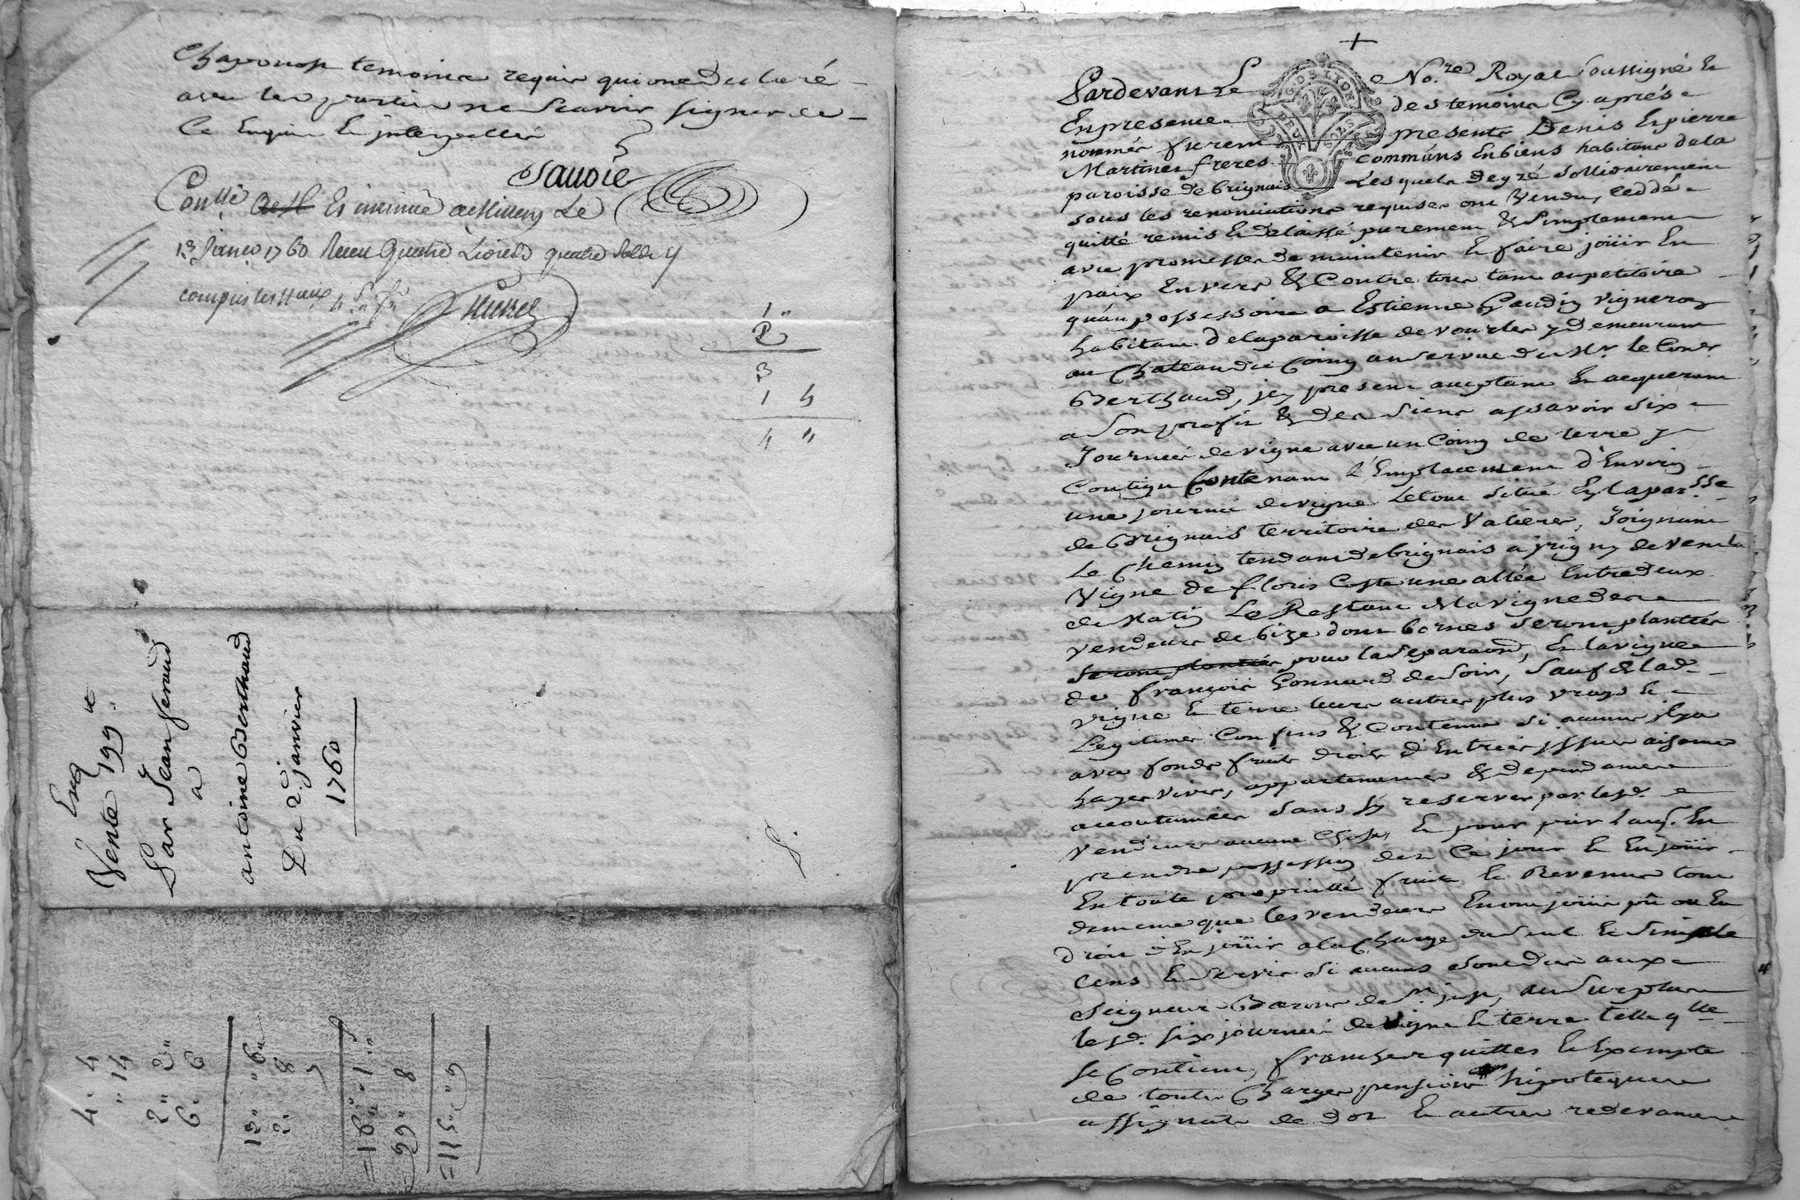 Chaponost temoins requis qui ont declaré
avec les parties ne scavoir signer de
ce enquis et interpellés
Savoie
Conllé et insinué a Millery le
13 Janvier 1760 Receu Quatre Livres quatre sols
compris les
1"
2
3
1 4
4 "
Vente 199"
Par Jean
a
antoine Berthaud
Du 2e janvier
1760
S.
4. 4
" 14
2" 2"
6. 6
13" " 6"
2. 8
=16" 1" 8
99" 8
=115" 9
+
Pardevant Le No.re Royal soussigné &
En presence des temoins cy aprés
nommés furent presents Denis et pierre
Martinet freres communs en biens habitans de la
paroisse de brignais Lesquels de gré sollidairement
sous les renonciations requises ont vendu, ceddé
quitté remis et delaissé purement & simplement
avec promesse de maintenir et faire joüir en
paix Envers & Contre tous tant au petitoire
qu'au possessoire a Estienne Gaudin vigneron
habitant de la paroisse de vourles y demeurant
au chateau du Coin au service du Sr. le Coner
Berthaud, icy present acceptant et acquerant
a son profit & des siens a scavoir six
Journées de vigne avec un Coing de terre y
Contigu Contenant l'Emplacement d'Environ
une journée de vigne Le tout situé En la par.sse
de Brignais territoire des Valieres, Joignant
Le chemin tendant de brignais a jrigny de vent la
vigne de floris Coste une allée Entre deux
de Matin Le Restant de la vigne des
vendeurs de bize dont bornes seront plantées
seront plantées pour la separaōn, Et la vigne
de françois Bonnard de soir, Sauf de lad.
vigne et terre leurs autres plus vrays &
Legitimes Confins & Contenue si aucuns il y a
avec fonds fruits droits d'Entrées issues aisances
hayes vives, appartenances & dependances
accoutumées sans s'y reserver par lesd.
vendeurs aucune chose, Et pour par l'acq. En
prendre possession dez Ce jour Et En joüir
En toute proprieté fruits Et Revenus tout
de meme que les vendeurs En ont joüis pû ou eu
droit d'En joüir a la charge du seul Et simple
cens Et servis si aucuns sont dus aux
seigneurs Barons de St. , au surplus
lesd. six journées de vigne Et terre telle q'lle
se contient, franches quittes Et Exempte
de toutes Charges pensions hipoteques
assignats de dot Et autres redevances